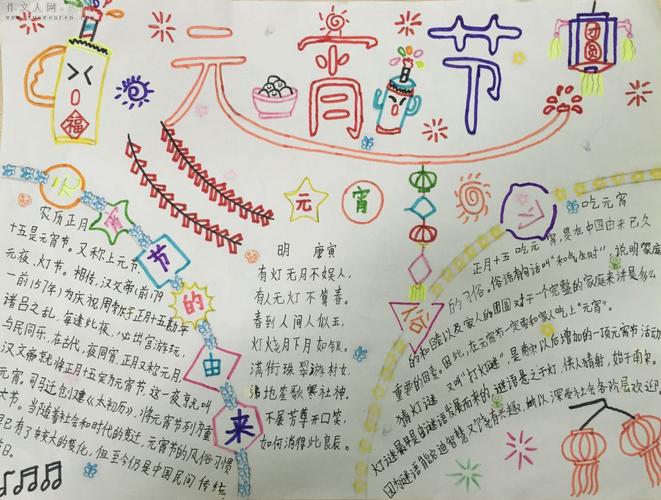 作文人网
元宵节
福
团圆
元宵节的由来
农历正月
十五是元宵节。又称上元节、
元夜、灯节。相传，汉文帝（前179
一前157年）为庆祝周勃于正月十五勘平
诸吕之乱，每逢此夜，必出宫游玩，
与民同乐，在古代，夜同宵，正月又称元月，
汉文帝就将正月十五定为元宵节，这一夜就叫
元宵。司马迁创建《太初历》，将元宵节列为重
大节。当随着社会和时代的变迁，元宵节的风俗习惯
已有了较大的变化，但至今仍是中国民间传统
节日。
元宵
明 唐寅
有灯无月不娱人，
有月无灯不算春。
春到人间人似玉，
灯烧月下月如银。
满街珠翠游村女，
沸地笙歌赛社神。
不展芳尊开口笑，
如何消得此良辰。
习俗
吃元宵
正月十五吃元宵，是在中国由来已久
的习俗。俗语有句话叫"和气生财"，说明家庭
的和睦以及家人的团圆对于一个完整的家庭来讲是多么
重要的因素。因此，在元宵节一定要和家人吃上"元宵"。
猜灯谜 又叫"打灯谜"是元宵以后增加的一项元宵节活动
灯谜最早是由谜语发展而来的 谜语悬之于灯，供人猜射，始于南宋。
因为谜语能启迪智慧又饶有兴趣，所以深受社会各阶层欢迎